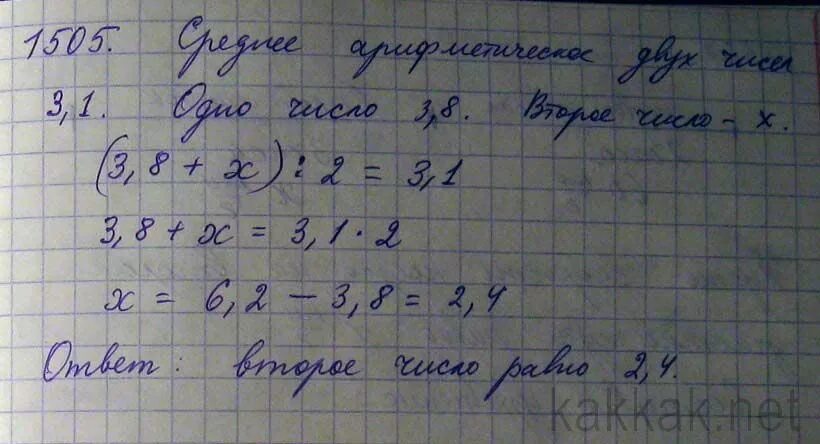 1505. Среднее арифметическое двух чисел
3,1. Одно число 3,8. Второе число - x.
(3,8 + x) : 2 = 3,1
3,8 + x = 3,1 · 2
x = 6,2 - 3,8 = 2,4
Ответ: второе число равно 2,4.
kakkak.net